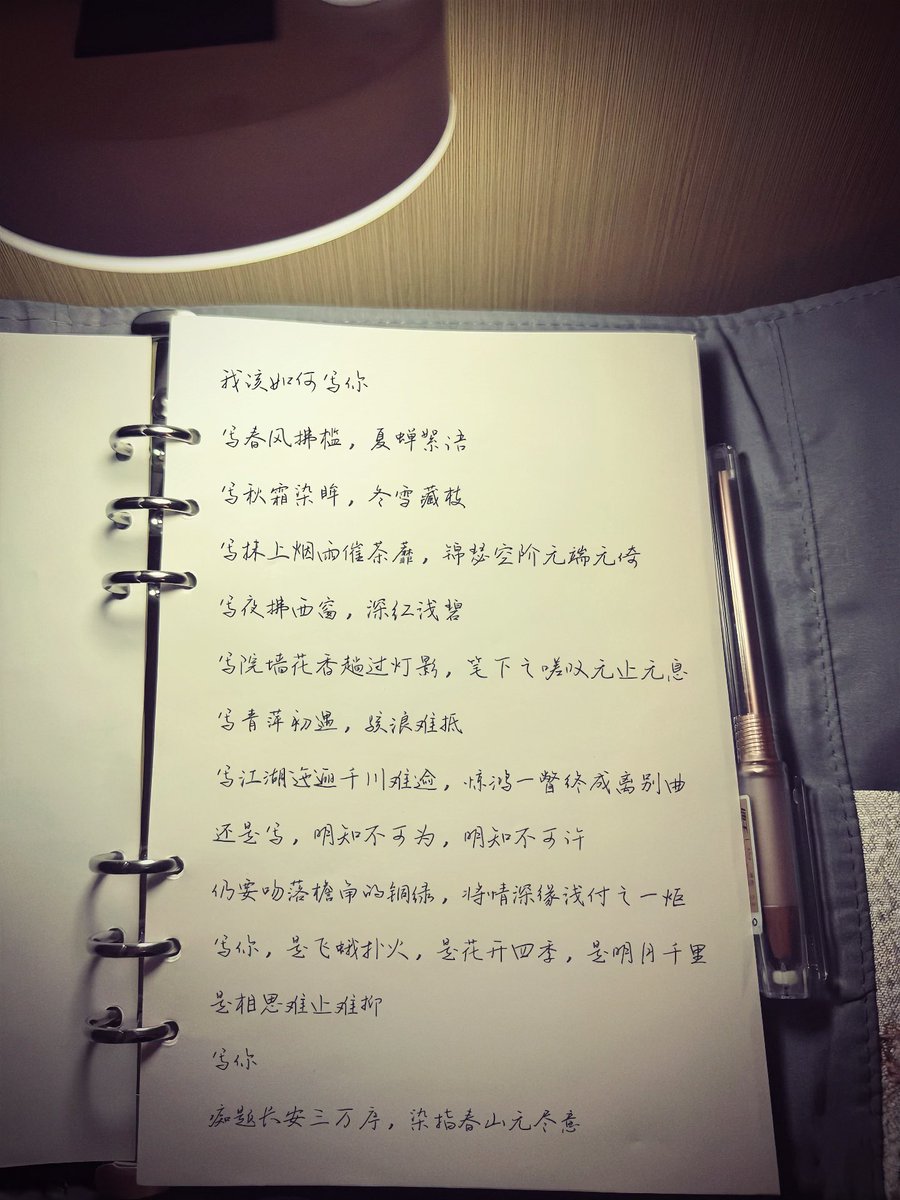 我该如何写你
写春风拂槛，夏蝉絮语
写秋霜染眸，冬雪藏枝
写抹上烟雨催荼蘼，锦瑟空阶无端无倚
写夜拂西窗，深红浅碧
写院墙花香趟过灯影，笔下之嗟叹无止无息
写青萍初遇，骇浪难抵
写江湖迤逦千川难逾，惊鸿一瞥终成离别曲
还是写，明知不可为，明知不可许
仍要吻落檐角的铜绿，将情深缘浅付之一炬
写你，是飞蛾扑火，是花开四季，是明月千里
是相思难止难抑
写你
痴题长安三万序，染指春山无尽意